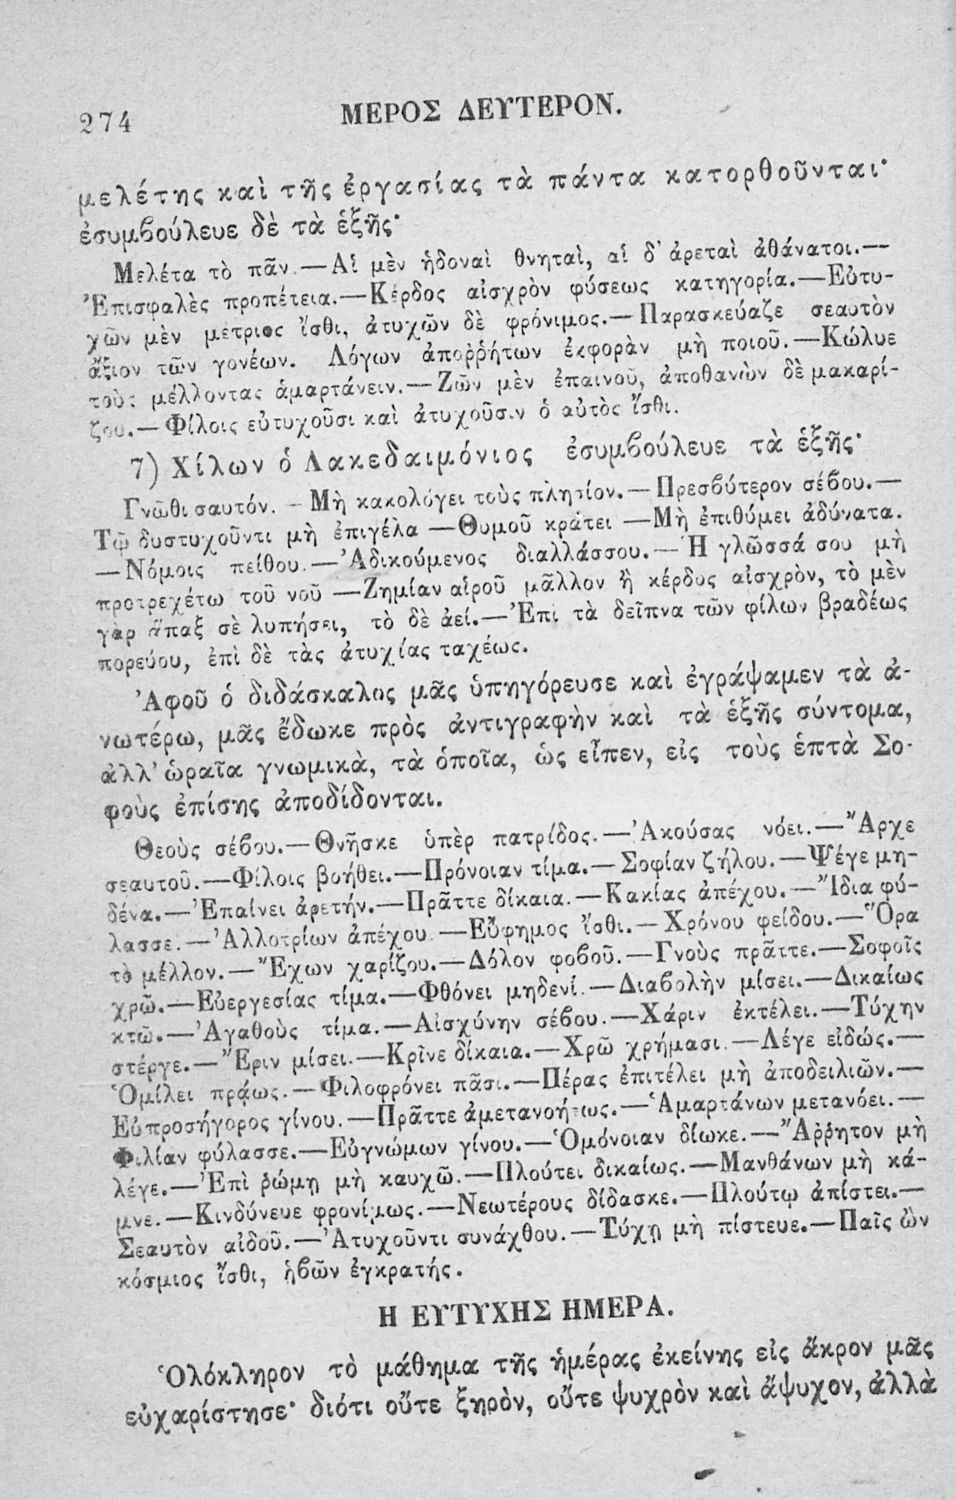 274
ΜΕΡΟΣ ΔΕΥΤΕΡΟΝ.
μελέτης καὶ τῆς ἐργασίας τὰ πάντα κατορθοῦνται·
ἐσυμβούλευε δὲ τὰ ἑξῆς·
Μελέτα τὸ πᾶν.—Αἱ μὲν ἡδοναὶ θνηταὶ, αἱ δ' ἀρεταὶ ἀθάνατοι.—
Ἐπισφαλὲς προπέτεια.—Κέρδος αἰσχρὸν φύσεως κατηγορία.—Εὐτυ-
χῶν μὲν μέτριος ἴσθι, ἀτυχῶν δὲ φρόνιμος.—Παρασκεύαζε σεαυτὸν
ἄξιον τῶν γονέων. Λόγων ἀποῤῥήτων ἐκφορὰν μὴ ποιοῦ.—Κώλυε
τοὺς μέλλοντας ἁμαρτάνειν.—Ζῶν μὲν ἐπαινοῦ, ἀποθανὼν δὲ μακαρί-
ζου.—Φίλοις εὐτυχοῦσι καὶ ἀτυχοῦσιν ὁ αὐτὸς ἴσθι.
7) Χίλων ὁ Λακεδαιμόνιος ἐσυμβούλευε τὰ ἑξῆς·
Γνῶθι σαυτόν. – Μὴ κακολόγει τοὺς πλησίον.—Πρεσβύτερον σέβου.—
Τῷ δυστυχοῦντι μὴ ἐπιγέλα —Θυμοῦ κράτει —Μὴ ἐπιθύμει ἀδύνατα.
—Νόμοις πείθου.—Ἀδικούμενος διαλλάσσου.—Ἡ γλῶσσά σου μὴ
προτρεχέτω τοῦ νοῦ —Ζημίαν αἱροῦ μᾶλλον ἢ κέρδος αἰσχρὸν, τὸ μὲν
γὰρ ἅπαξ σὲ λυπήσει, τὸ δὲ ἀεί.—Ἐπὶ τὰ δεῖπνα τῶν φίλων βραδέως
πορεύου, ἐπὶ δὲ τὰς ἀτυχίας ταχέως.
Ἀφοῦ ὁ διδάσκαλος μᾶς ὑπηγόρευσε καὶ ἐγράψαμεν τὰ ἀ-
νωτέρω, μᾶς ἔδωκε πρὸς ἀντιγραφὴν καὶ τὰ ἑξῆς σύντομα,
ἀλλ' ὡραῖα γνωμικὰ, τὰ ὁποῖα, ὡς εἶπεν, εἰς τοὺς ἑπτὰ Σο-
φοὺς ἐπίσης ἀποδίδονται.
Θεοὺς σέβου.—Θνῆσκε ὑπὲρ πατρίδος.—Ἀκούσας νόει.—Ἄρχε
σεαυτοῦ.—Φίλοις βοήθει.—Πρόνοιαν τίμα.—Σοφίαν ζήλου.—Ψέγε μη-
δένα.—Ἐπαίνει ἀρετήν.—Πρᾶττε δίκαια.—Κακίας ἀπέχου.—Ἴδια φύ-
λασσε.—Ἀλλοτρίων ἀπέχου.—Εὔφημος ἴσθι.—Χρόνου φείδου.—Ὅρα
τὸ μέλλον.—Ἔχων χαρίζου.—Δόλον φοβοῦ.—Γνοὺς πρᾶττε.—Σοφοῖς
χρῶ.—Εὐεργεσίας τίμα.—Φθόνει μηδενί.—Διαβολὴν μίσει.—Δικαίως
κτῶ.—Ἀγαθοὺς τίμα.—Αἰσχύνην σέβου.—Χάριν ἐκτέλει.—Τύχην
στέργε.—Ἔριν μίσει.—Κρῖνε δίκαια.—Χρῶ χρήμασι.—Λέγε εἰδώς.—
Ὁμίλει πρᾴως.—Φιλοφρόνει πᾶσι.—Πέρας ἐπιτέλει μὴ ἀποδειλιῶν.—
Εὐπροσήγορος γίνου.—Πρᾶττε ἀμετανοήτως.—Ἁμαρτάνων μετανόει.—
Φιλίαν φύλασσε.—Εὐγνώμων γίνου.—Ὁμόνοιαν δίωκε.—Ἄῤῥητον μὴ
λέγε.—Ἐπὶ ῥώμῃ μὴ καυχῶ.—Πλούτει δικαίως.—Μανθάνων μὴ κά-
μνε.—Κινδύνευε φρονίμως.—Νεωτέρους δίδασκε.—Πλούτῳ ἀπίστει.—
Σεαυτὸν αἰδοῦ.—Ἀτυχοῦντι συνάχθου.—Τύχῃ μὴ πίστευε.—Παῖς ὢν
κόσμιος ἴσθι, ἡβῶν ἐγκρατής.
Η ΕΥΤΥΧΗΣ ΗΜΕΡΑ.
Ὁλόκληρον τὸ μάθημα τῆς ἡμέρας ἐκείνης εἰς ἄκρον μᾶς
εὐχαρίστησε· διότι οὔτε ξηρὸν, οὔτε ψυχρὸν καὶ ἄψυχον, ἀλλὰ